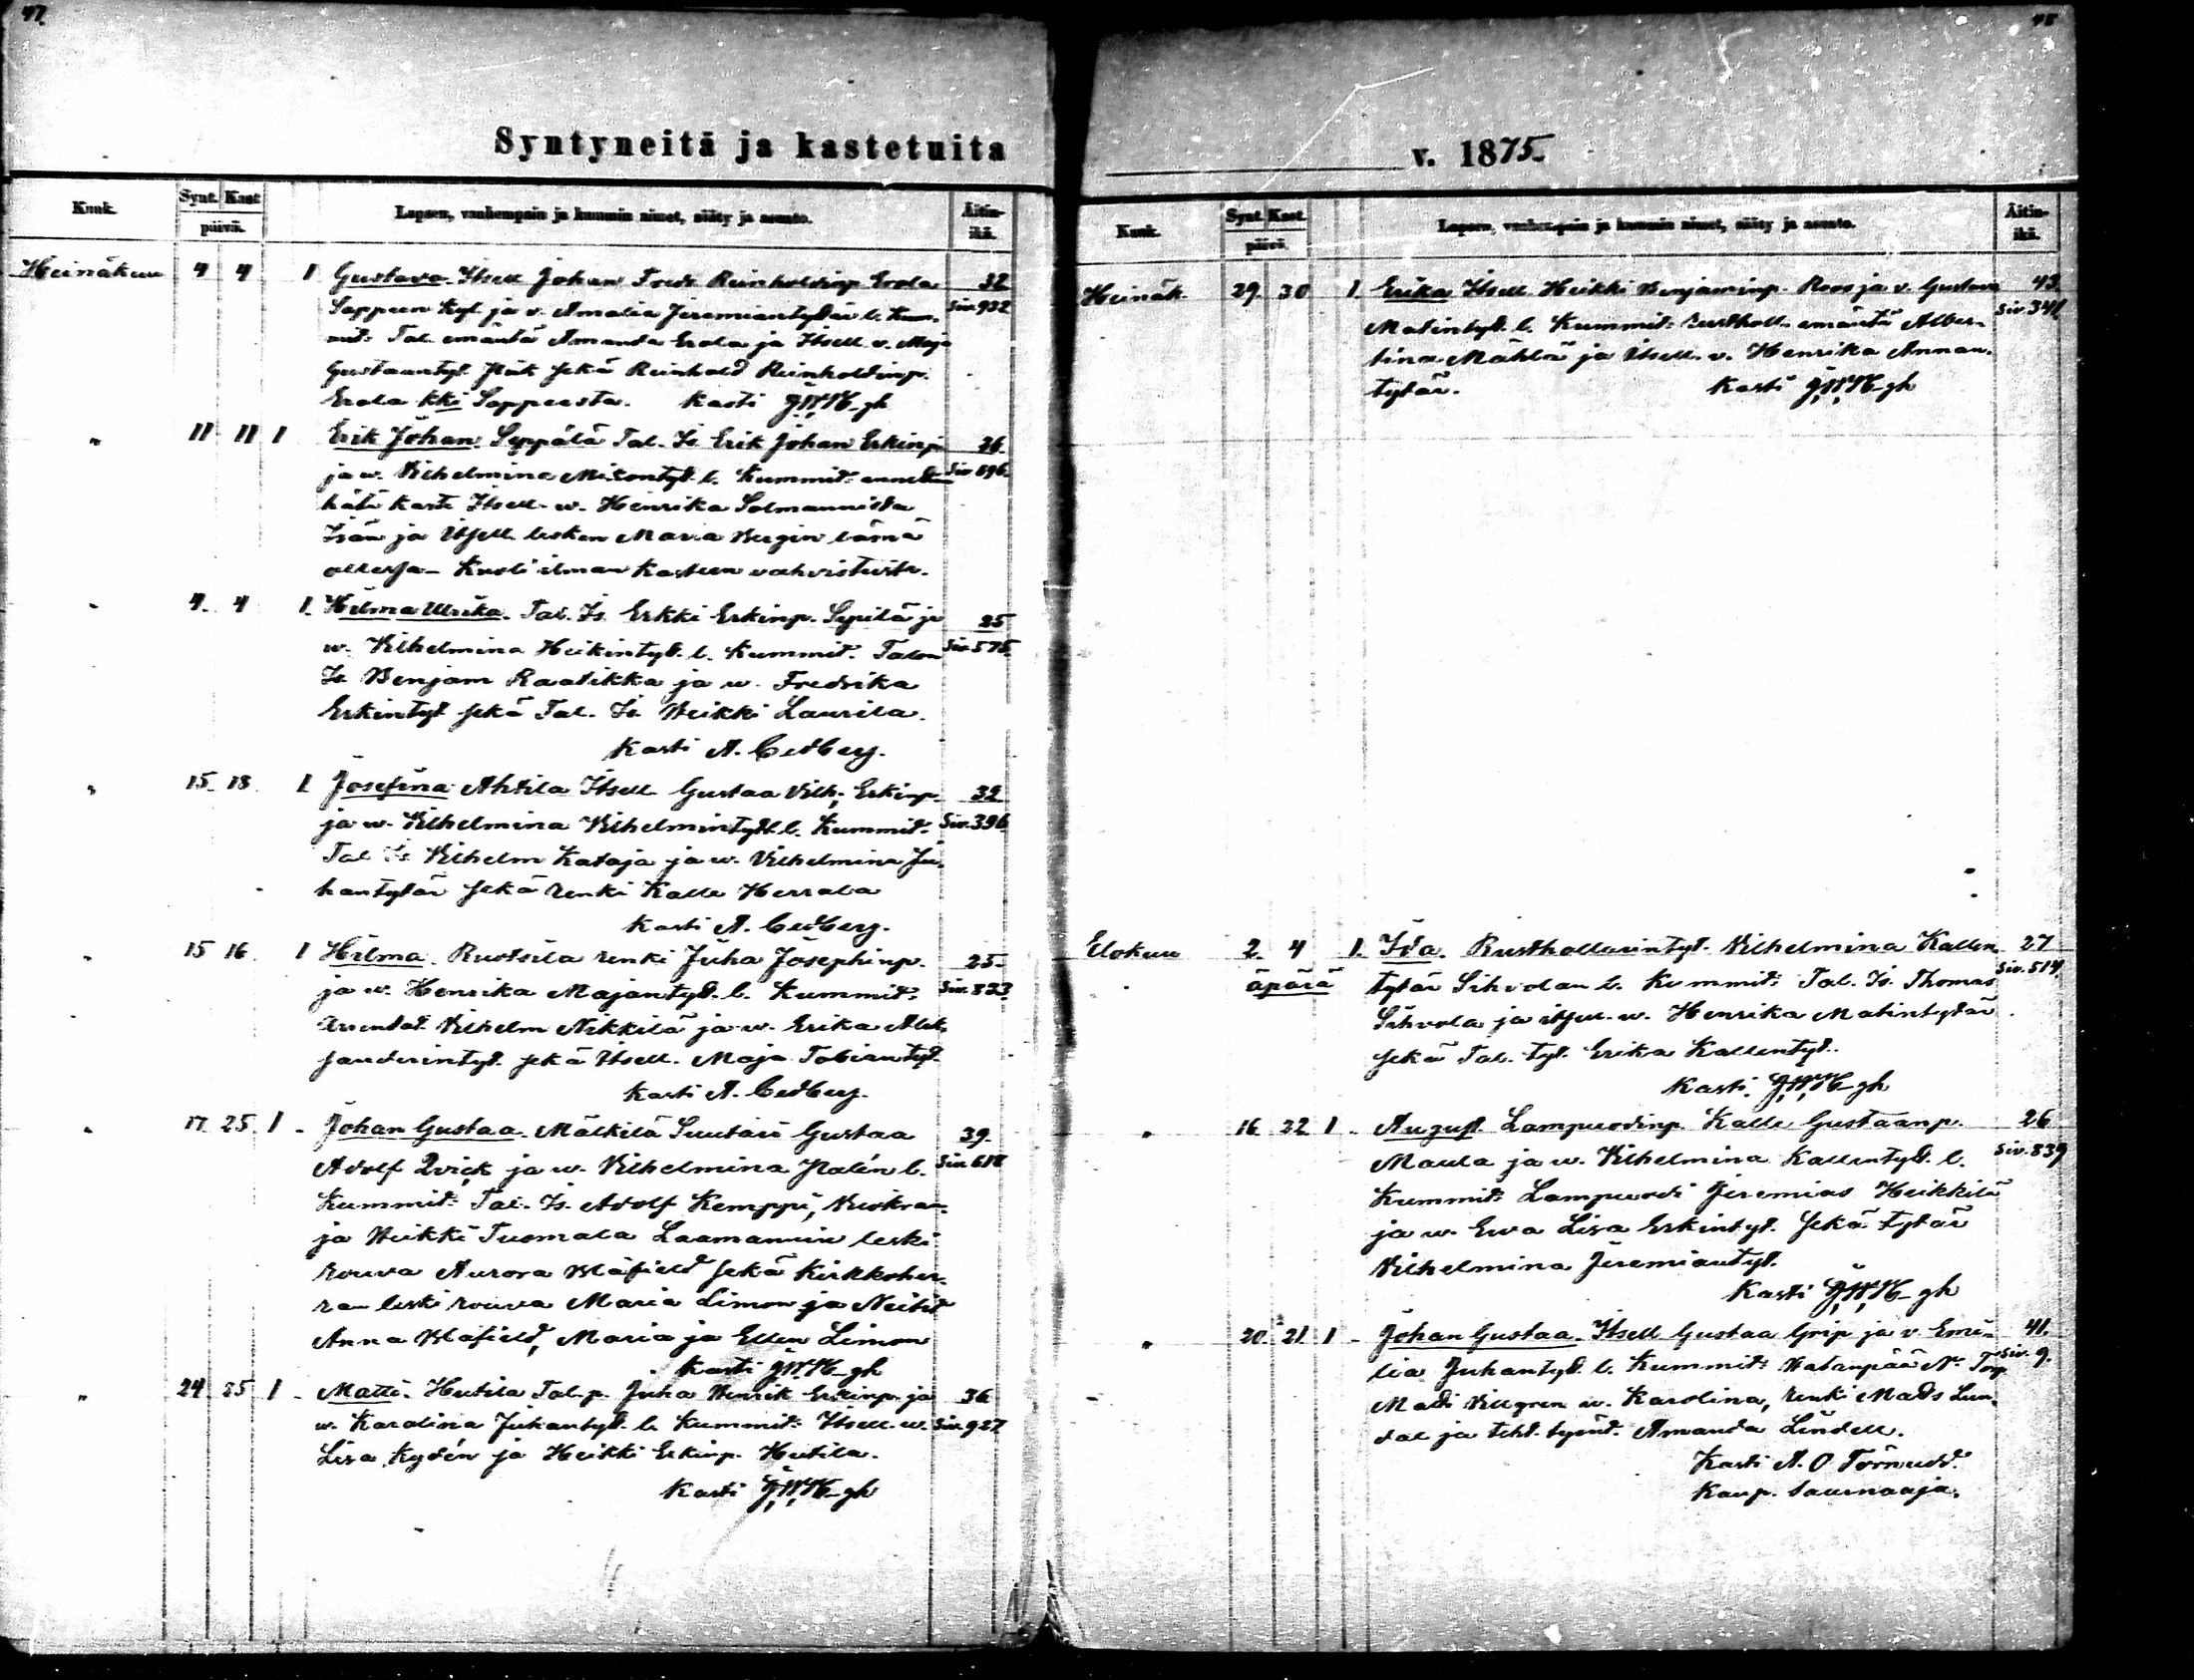 47.
Syntyneitä ja kastetuita
Kuuk.
Synt.
Kast.
päivä.
Lapsen, vanhempain ja kummin nimet, sääty ja asunto.
Äitin-
ikä.
Heinäkuu 4 4 1 Gustava. Itsell Johan Fredr. Reinholdinp. Erola 32
Sappeen kyl. ja v. Amalia Jeremiantytär l. Kum- Siv. 932
mit: Tal. emäntä Amanda Erola ja Itsell. v. Maja
Gustaantyt. sekä Reinhold Reinholdinp.
Erola kki Sappeesta. Kasti
" 11 11 1 Erik Johan. Seppälä Tal. Is. Erik Johan Erkinp. 26.
ja w. Vilhelmina Mikontyt. l. Kummit: annettu Siv. 696.
hätä kaste Itsell. w. Henrika Solmannista
Isän ja Itsell. lesken Maria Bergin läsnä
ollessa - Kuoli ilman kasteen vahvistusta.
" 4. 4 1. Hilma Ulrika. Tal. Is. Erkki Erkinp. Sepilä ja 25
w. Vilhelmina Heikintyt. l. Kummit: Talon Siv. 575.
Is. Benjam Raatikka ja w. Fredrika
Erkintyt sekä Tal. Is. Heikki Laurila.
Kasti A. Cedberg.
" 15. 18. 1 Josefina Ahtila Itsell. Gustaa Vilh. Erkinp. 32
ja w. Vilhelmina Vilhelmintytt. l. Kummit: Siv. 396
Tal. Is. Vilhelm Kataja ja w. Vilhelmina Ju-
hantytär sekä renki Kalle Herrala
Kasti A. Cedberg.
" 15 16. 1 Hilma. Ruotsila renki Juha Josephinp. 25.
ja w. Henrika Majantyt. l. Kummit: Siv. 823
Arendat. Vilhelm Nikkilä ja w. Erika Alek-
sanderintyt. sekä Itsell. Maja Tobiantyt.
Kasti A. Cedberg.
" 17. 25. 1 - Johan Gustaa. Mälkilä Suutari Gustaa 39.
Adolf Qvick ja w. Vilhelmina l. Siv. 618
Kummit: Tal. Is. Adolf Kemppi,
ja Heikki Tuomala Laamannin leski
rouva Aurora Blåfield sekä Kirkkoher-
ran leski rouva Maria Limon ja Neitit
Anna Blåfield, Maria ja Ellen Limon
Kasti
" 24 25 1 - Matti. Hutila Tal. p. Juha Henrik Erkinp. ja 36
w. Karolina Juhantyt. l. Kummit: Itsell. w. Siv. 927
Lisa Rydén ja Heikki Erkinp. Hutila.
Kasti
v. 1875.
Kuuk.
Synt.
Kast.
päivä.
Lapsen, vanhempain ja kummin nimet, sääty ja asunto.
Äitin-
ikä.
Heinäk. 29. 30 1. Erika Itsell. Heikki Benjaminp. Roos ja v. Gustava 43.
Matintyt. l. Kummit: rustholl. emäntä Alber- Siv. 341
tina MähLä ja Itsell. v. Henrika Annan-
tytär. Kasti
Elokuu 2. 4 1. Ida. Rusthollarintyt. Vilhelmina Kallen 27
äpärä tytär Sihvolan l. Kummit: Tal. Is. Thomas Siv. 514.
Sihvola ja itsell. w. Henrika Matintytär
sekä Tal. tyt. Erika Kallentyt.
Kasti
" 16 22 1 - August. Lampuodinp. Kalle Gustaanp. 26
Maula ja w. Vilhelmina Kallentyt. l. Siv. 839
Kummit: Lampuodi Jeremias Heikkilä
ja w. Ewa Lisa Erkintyt. sekä tytär
Vilhelmina Jeremiantyt.
Kasti
" 20. 21. 1 - Johan Gustaa. Itsell Gustaa Grip ja v. Emi- 41.
lia Juhantyt. l. Kummit: Hatanpää Nº Torp. Siv. 9.
Mats Villgren w. Karolina, renki Mads Lun-
dal ja teht. työnt. Amanda Lindell.
Kasti A. O Törnudd.
Kaup. saarnaaja.